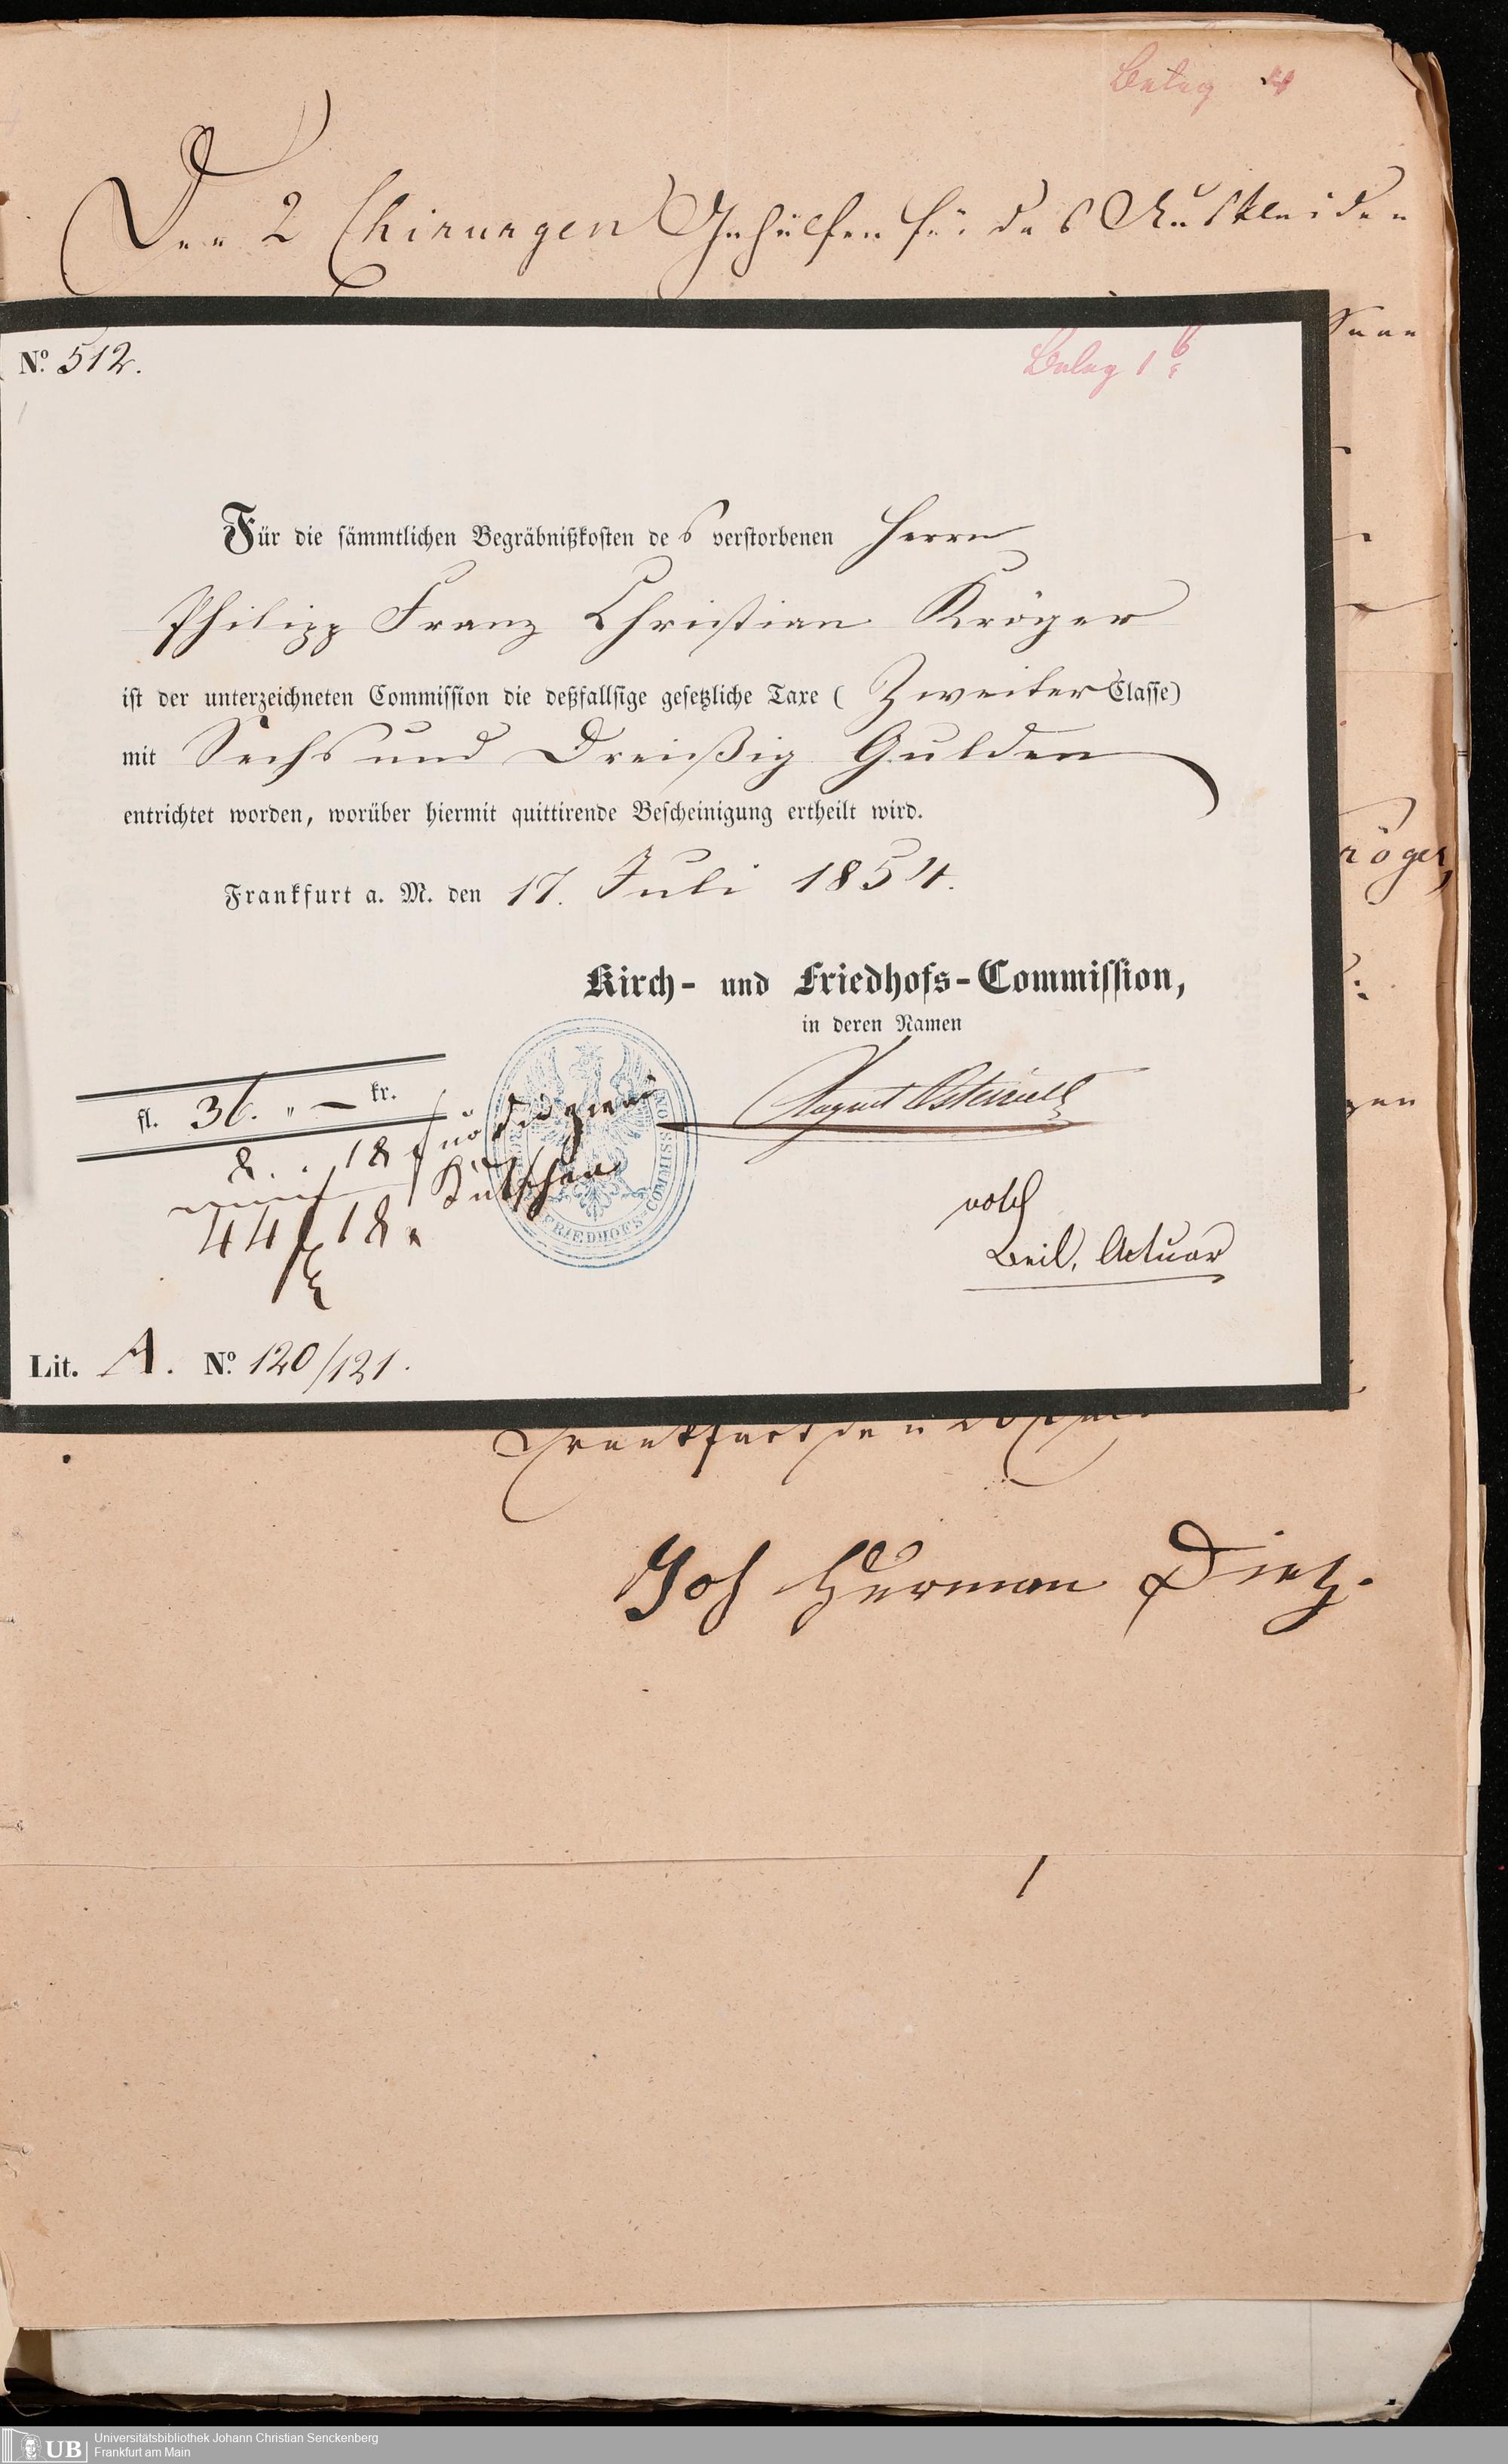 Beleg 4
Den 2 Chirurgen Gehülfen für das Auskleiden
No. 512.
Beleg 1 b
Für die sämmtlichen Begräbnißkosten des verstorbenen Herrn
Philipp Franz Christian Kröger
ist der unterzeichneten Commission die deßfallsige gesetzliche Taxe ( Zweiter Classe)
mit Sechs und Dreißig Gulden
entrichtet worden, worüber hiermit quittirende Bescheinigung ertheilt wird.
röger,
Frankfurt a. M. den 17. Juli 1854.
Kirch- und Friedhofs-Commission,
in deren Namen
fl. 36. " — kr.
8. . 18 die zwei
Kutschen
44 f 18 x
FRIEDHOFS-COMMISSION
August
Beil, Actuar
Lit. A. No. 120/121.
Frankfurt den
Joh Herman Dietz.
UB
Universitätsbibliothek Johann Christian Senckenberg
Frankfurt am Main